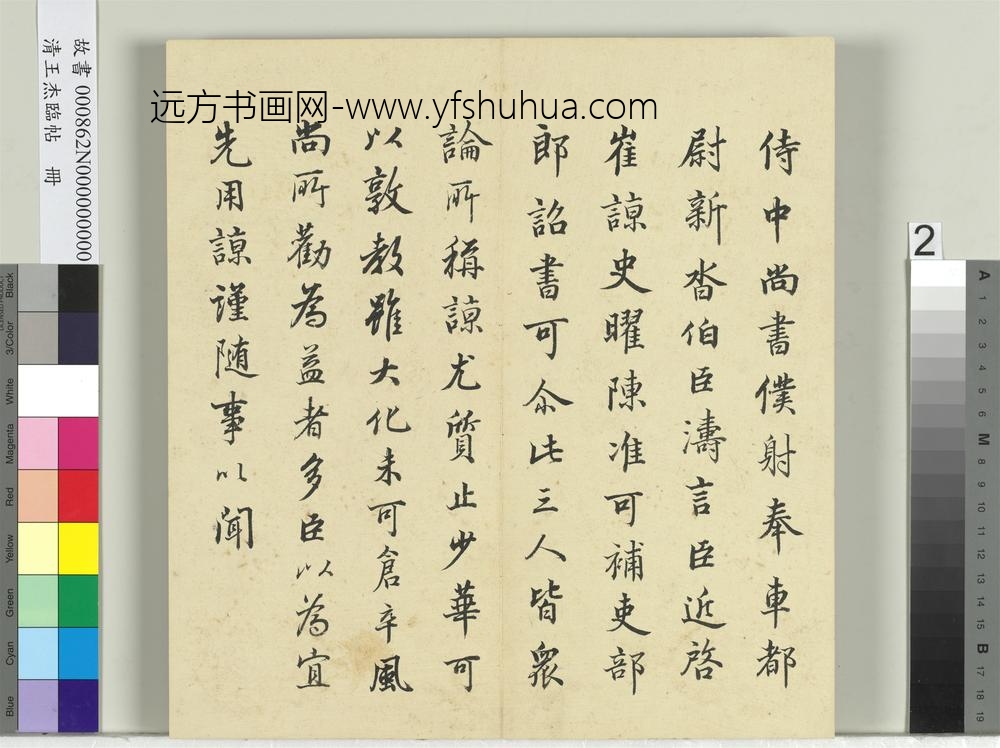 侍中尚書僕射奉車都
尉新沓伯臣濤言臣近啓
崔諒史曜陳准可補吏部
郎詔書可尒此三人皆衆
論所稱諒尤質止少華可
以敦教雖大化未可倉卒風
尚所勸為益者多臣以為宜
先用諒謹随事以聞
远方书画网-www.yfshuhua.com
故書 000862N000000000
清王杰臨帖 冊
2
Black
3/Color
White
Magenta
Red
Yellow
Green
Cyan
Blue
A
1
2
3
4
5
6
M
8
9
10
11
12
13
14
15
B
17
18
19